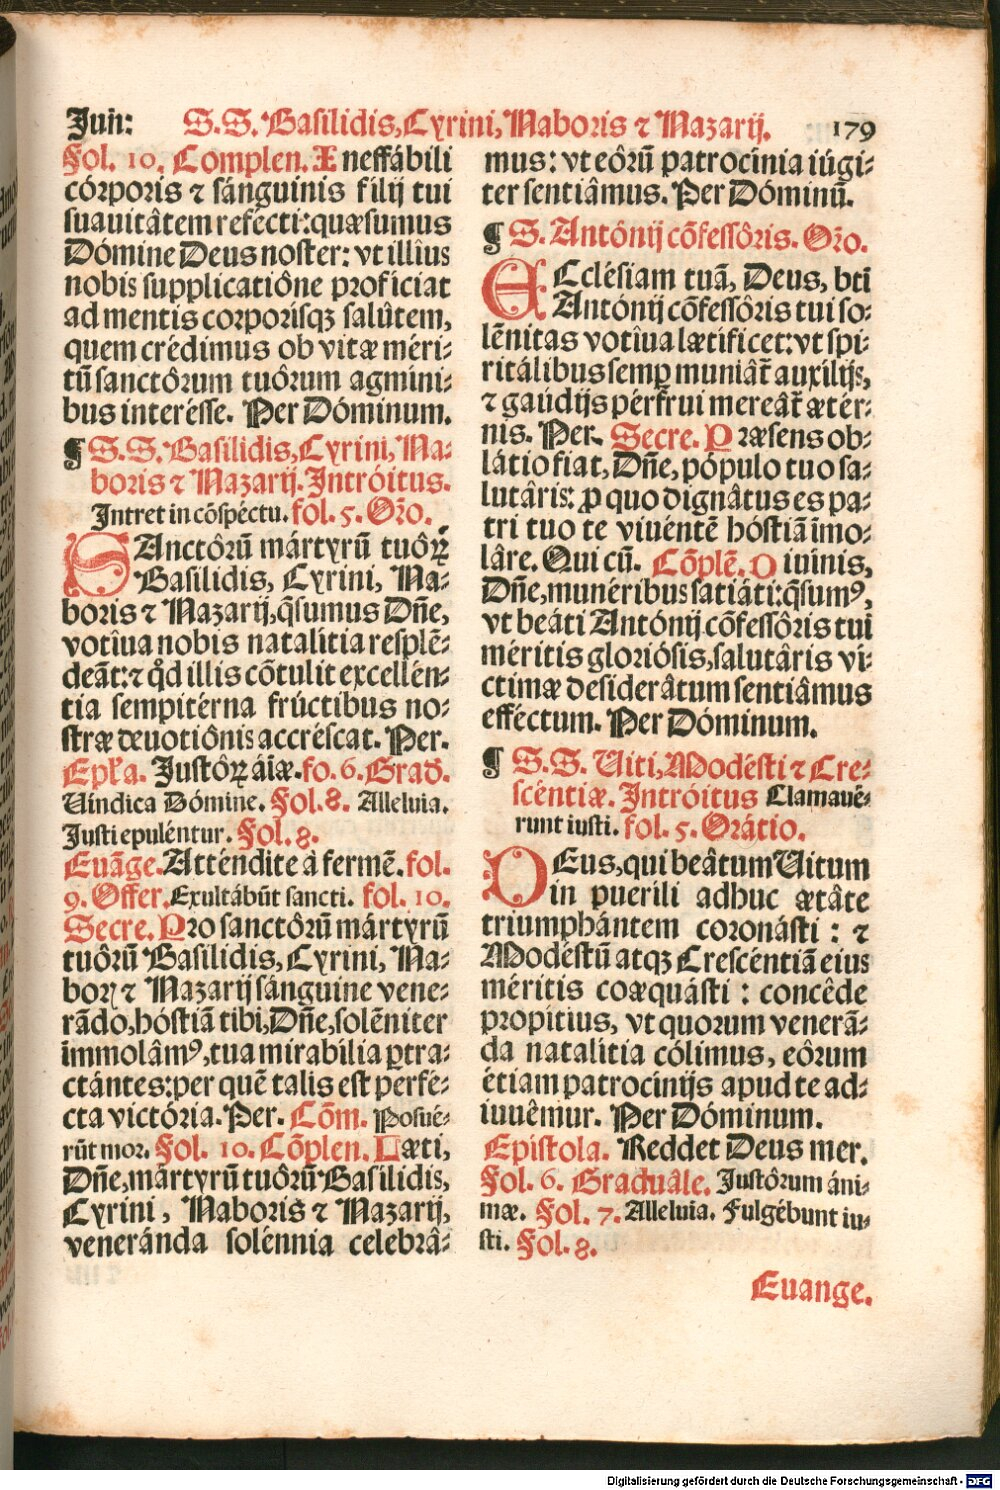 Juñ: S.S. Basilidis, Cyrini, Naboris ⁊ Nazarij. 179
Fol. 10. Complen. Ineffábili
córporis ⁊ sánguinis filij tui
suauitâtem refécti: quæsumus
Dómine Deus noster: vt illîus
nobis supplicatiône proficiat
ad mentis corporisqꝫ salûtem,
quem crédimus ob vitæ méri⸗
tũ sanctôrum tuôrum agmini⸗
bus interésse. Per Dóminum.
¶ S.S. Basilidis, Cyrini, Na⸗
boris ⁊ Nazarij. Intróitus.
Intret in cõspéctu. fol. 5. Oŕo.
SAnctôrũ mártyrũ tuôꝝ
Basilidis, Cyrini, Na⸗
boris ⁊ Nazarij, q̃sumus Dñe,
votîua nobis natalitia resplẽ⸗
deãt: ⁊ qd́ illis cõtulit excellén⸗
tia sempitérna frúctibus no⸗
stræ deuotiônis accréscat. Per.
Epl̃a. Justôꝝ aîæ. fo. 6. Grad.
Uindica Dómine. Fol. 8. Alleluia.
Justi epuléntur. Fol. 8.
Euãge. Atténdite à fermẽ. fol.
9. Offer. Exultábũt sancti. fol. 10.
Secre. Pro sanctôrũ mártyrũ
tuôrũ Basilidis, Cyrini, Na⸗
boꝝ ⁊ Nazarij sánguine vene⸗
rãdo, hóstiã tibi, Dñe, solẽniter
ĩmmolâmꝰ, tua mirabilia ꝑtra⸗
ctántes: per quẽ talis est perfé⸗
cta victória. Per. Cõm. Posué⸗
rũt mor. Fol. 10. Cõplen. Læti,
Dñe, mártyrũ tuôrũ Basilidis,
Cyrini, Naboris ⁊ Nazarij,
veneránda solénnia celebrâ⸗
mus: vt eôrũ patrocinia iúgi⸗
ter sentiâmus. Per Dóminũ.
¶ S. Antónij cõfessôris. Oŕo.
ECclésiam tuã, Deus, bti̅
Antónij cõfessôris tui so⸗
lẽnitas votîua lætificet: vt spi⸗
ritálibus semꝑ muniât̃ auxilijs,
⁊ gaúdijs pérfrui mereât̃ ætér⸗
nis. Per. Secre. Præsens ob⸗
látio fiat, Dñe, pópulo tuo sa⸗
lutâris: ꝓ quo dignâtus es pa⸗
tri tuo te viuéntẽ hóstiã ĩmo⸗
lâre. Qui cũ. Cõplẽ. Diuinis,
Dñe, munéribus satiáti: q̃sumꝰ,
vt beáti Antónij cõfessôris tui
méritis gloriósis, salutâris vi⸗
ctimæ desiderâtum sentiâmus
efféctum. Per Dóminum.
¶ S.S. Uiti, Modésti ⁊ Cre⸗
scéntiæ. Intróitus Clamaué⸗
runt iusti. fol. 5. Orátio.
DEus, qui beâtum Uitum
in puerili adhuc ætâte
triumphántem coronásti : ⁊
Modéstũ atqꝫ Crescéntiã eius
méritis coæquásti : concêde
propitius, vt quorum venerã⸗
da natalitia cólimus, eôrum
étiam patrocinijs apud te ad⸗
iuuêmur. Per Dóminum.
Epistola. Reddet Deus mer.
Fol. 6. Graduâle. Justôrum áni⸗
mæ. Fol. 7. Alleluia. Fulgébunt iu⸗
sti. Fol. 8.
Euange.
Digitalisierung gefördert durch die Deutsche Forschungsgemeinschaft - DFG